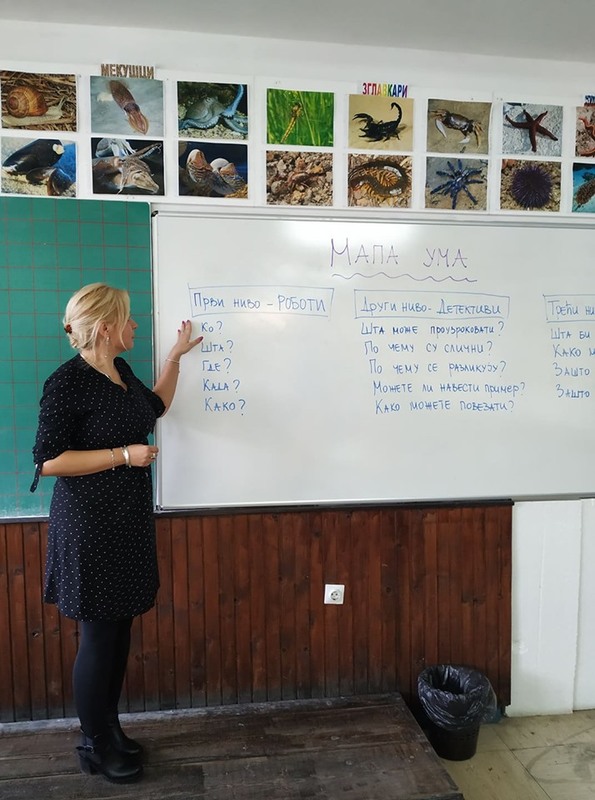 МЕКУШЦИ
ЗГЛАВКАРИ
МАПА УМА
ПРВИ НИВО - РОБОТИ
КО?
ШТА?
ГДЕ?
КАДА?
КАКО?
ДРУГИ НИВО - ДЕТЕКТИВИ
ШТА МОЖЕ ПРОУЗРОКОВАТИ?
ПО ЧЕМУ СУ СЛИЧНИ?
ПО ЧЕМУ СЕ РАЗЛИКУЈУ?
МОЖЕТЕ ЛИ НАВЕСТИ ПРИМЕР?
КАКО МОЖЕТЕ ПОВЕЗАТИ?
ТРЕЋИ
ШТА БИ
КАКО
ЗАШТО
ЗАШТО